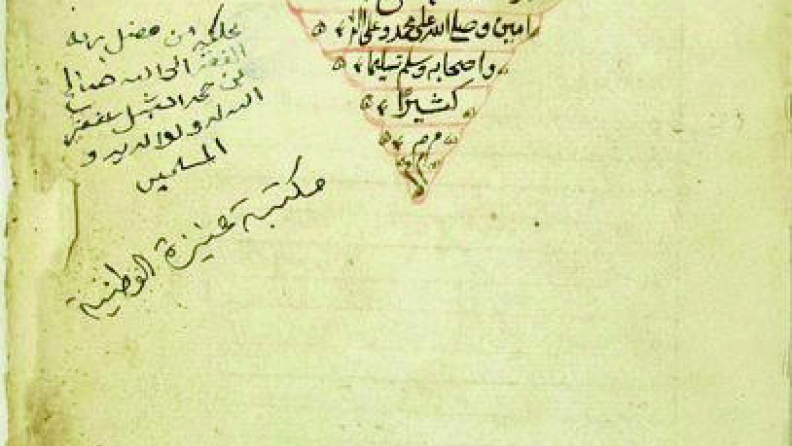 امين وصلى الله على محمد وعلى اله
واصحابه وسلم تسليما
كثيرًا
م م
ملكه من فضل ربه
الفقير الى الله
بن حمد الشبل غفر
الله له ولوالديه و
المسلمين
مكتبة عنيزة الوطنية